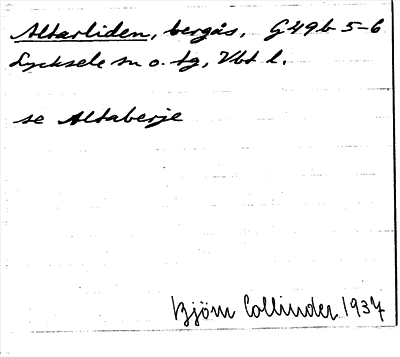 Altarliden, bergås, G49b 5-6
Lycksele sn o. tg, Vbt l.
se Altaberje
Björn Collinder 1937